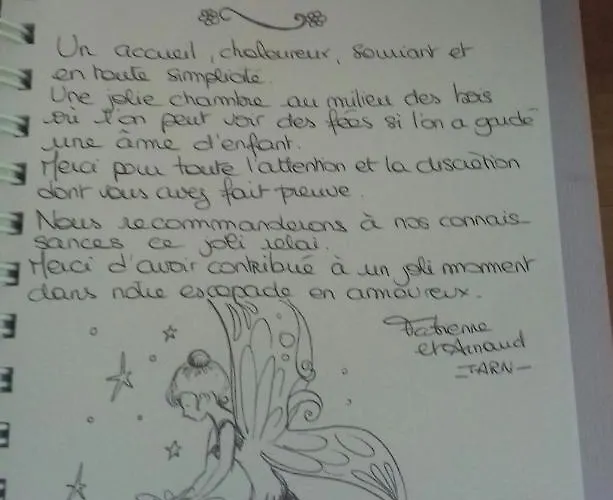 Un accueil, chaloureux, souriant et
en toute simplicité.
Une jolie chambre au milieu des bois
où l'on peut voir des fées si l'on a gardé
une âme d'enfant.
Merci pour toute l'attention et la discrétion
dont vous avez fait preuve.
Nous recommanderons à nos connais-
sances ce joli relai.
Merci d'avoir contribué à un joli moment
dans notre escapade en amoureux.
Fabienne
et Arnaud
-TARN-